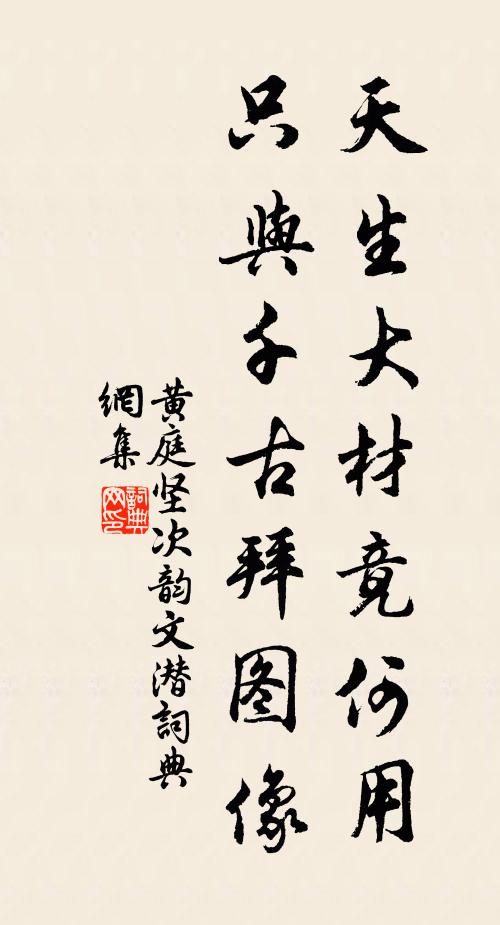 天生大材竟何用
只與千古拜图像
黄庭坚次韵文潜詞典
網集
詞典
网印